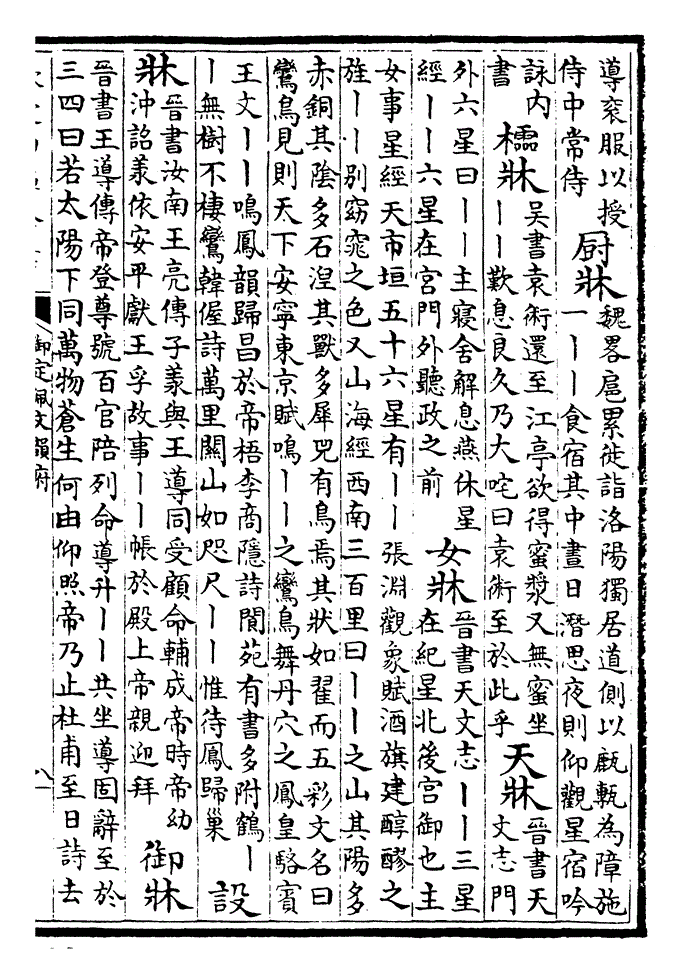 導衮服以授
侍中常侍
厨牀
魏畧扈累徙詣洛陽獨居道側以㼾甎為障施
一丨丨食宿其中晝日潛思夜則仰觀星宿吟
詠内
書
櫺牀
吳書袁術還至江亭欲得蜜漿又無蜜坐
丨丨歎息良久乃大咤曰袁術至於此乎
天牀
晉書天
文志門
外六星曰丨丨主寢舍解息燕休星
經丨丨六星在宮門外聽政之前
女牀
晉書天文志丨丨三星
在紀星北後宮御也主
女事星經天市垣五十六星有丨丨張淵觀象賦酒旗建醇醪之
旌丨丨別窈窕之色又山海經西南三百里曰丨丨之山其陽多
赤銅其陰多石湼其獸多犀兕有鳥焉其狀如翟而五彩文名曰
鸞鳥見則天下安寧東京賦鳴丨丨之鸞鳥舞丹穴之鳳皇駱賓
王文丨丨鳴鳳韻歸昌於帝梧李商隱詩閬苑有書多附鶴丨
丨無樹不棲鸞韓偓詩萬里關山如咫尺丨丨惟待鳳歸巢
設
牀
晉書汝南王亮傳子羕與王導同受顧命輔成帝時帝幼
沖詔羕依安平獻王孚故事丨丨帳於殿上帝親迎拜
御牀
晉書王導傳帝登尊號百官陪列命導升丨丨共坐導固辭至於
三四曰若太陽下同萬物蒼生何由仰照帝乃止杜甫至日詩去
御定佩文韻府